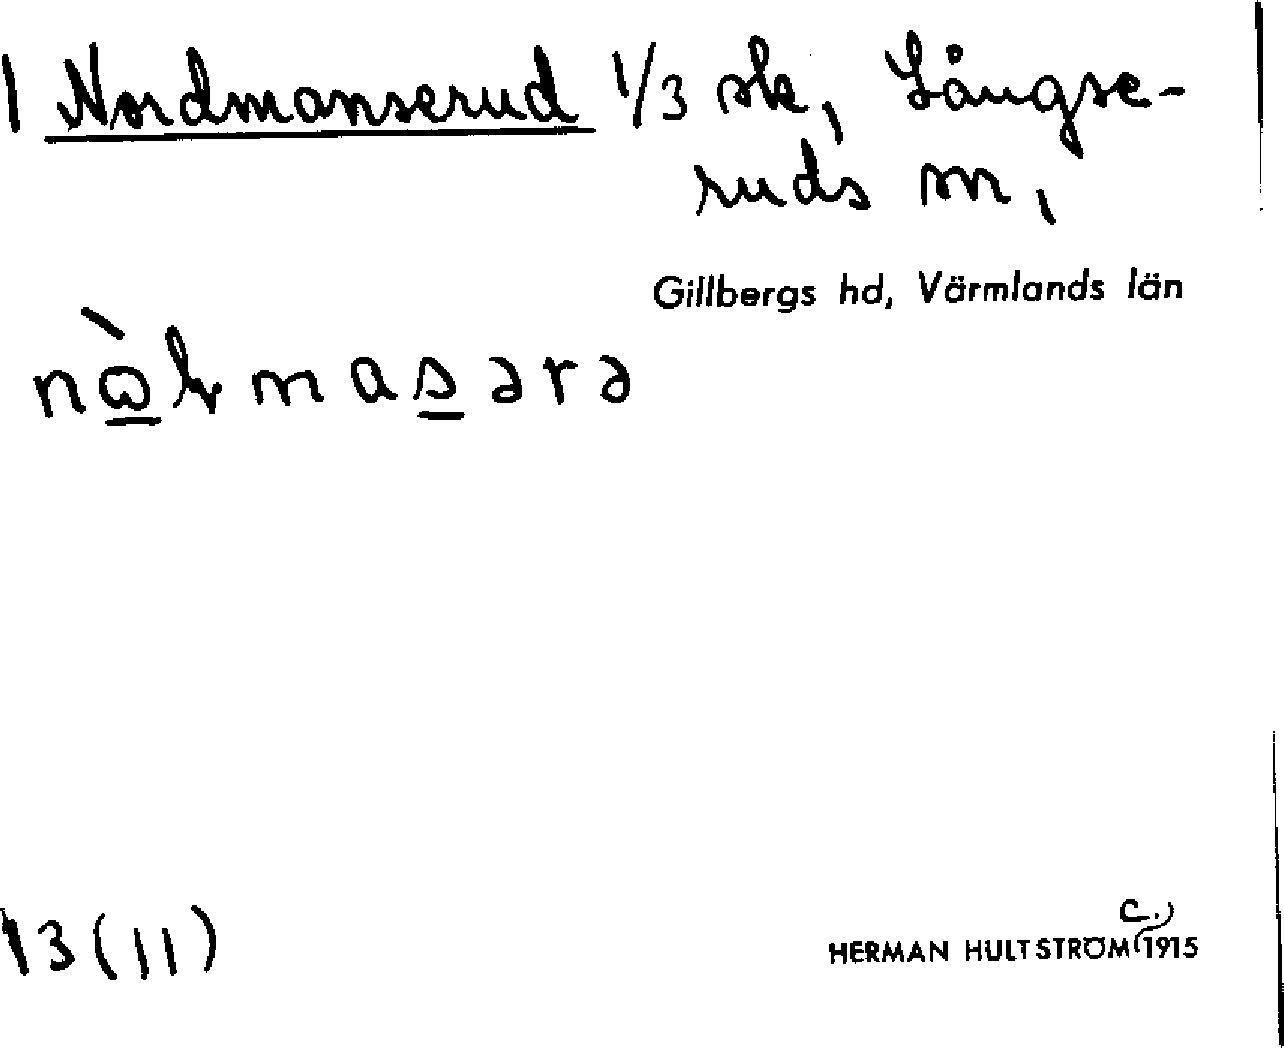 1 Nordmanserud 1/3 sk, Långse-
ruds sn,
Gillbergs hd, Värmlands län
13 (11)
c.,
HERMAN HULTSTRÖM 1915